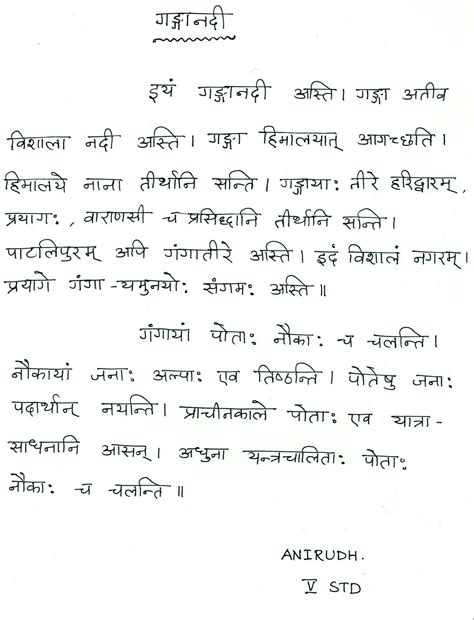 गङ्गानदी
इयं गङ्गानदी अस्ति। गङ्गा अतीव
विशाला नदी अस्ति। गङ्गा हिमालयात् आगच्छति।
हिमालये नाना तीर्थानि सन्ति। गङ्गायाः तीरे हरिद्वारम्,
प्रयागः, वाराणसी च प्रसिद्धानि तीर्थानि सन्ति।
पाटलिपुरम् अपि गंगातीरे अस्ति। इदं विशालं नगरम्।
प्रयागे गंगा-यमुनयोः संगमः अस्ति॥
गंगायां पोताः नौकाः च चलन्ति।
नौकायां जनाः अल्पाः एव तिष्ठन्ति। पोतेषु जनाः
पदार्थान् नयन्ति। प्राचीनकाले पोताः एव यात्रा-
साधनानि आसन्। अधुना यन्त्रचालिताः पोताः
नौकाः च चलन्ति॥
ANIRUDH.
V STD